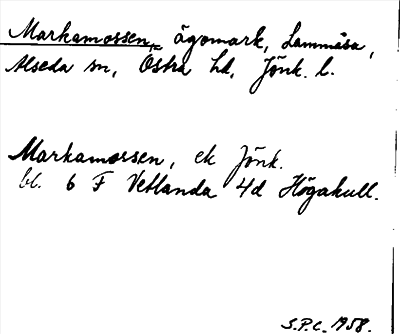 Markamossen, ägomark, Lammåsa,
Alseda sn, Östra hd, Jönk. l.
Markamossen, ek Jönk.
bl. 6 F Vetlanda 4d Högakull.
S.P.C. 1958.